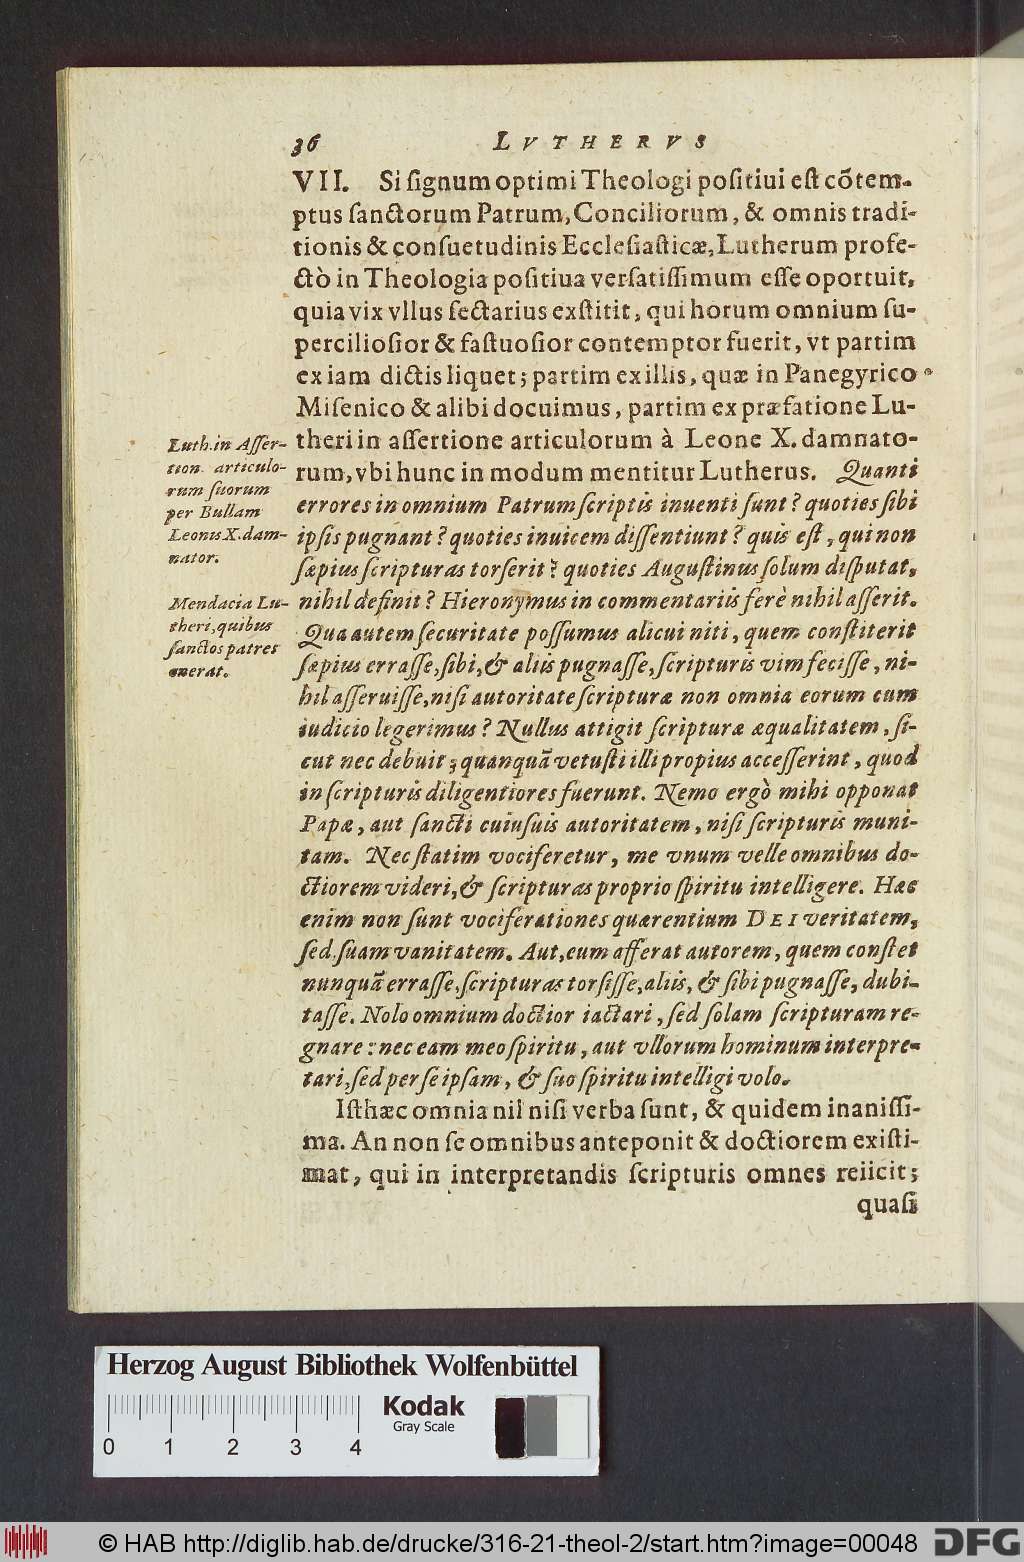 36 LVTHERVS
VII. Si signum optimi Theologi positiui est cõtem-
ptus sanctorum Patrum, Conciliorum, & omnis tradi-
tionis & consuetudinis Ecclesiasticæ, Lutherum profe-
ctò in Theologia positiua versatissimum esse oportuit,
quia vix vllus sectarius exstitit, qui horum omnium su-
perciliosior & fastuosior contemptor fuerit, vt partim
ex iam dictis liquet; partim ex illis, quæ in Panegyrico
Misenico & alibi docuimus, partim ex præfatione Lu-
theri in assertione articulorum à Leone X. damnato-
rum, vbi hunc in modum mentitur Lutherus. Quanti
errores in omnium Patrum scriptis inuenti sunt? quoties sibi
ipsis pugnant? quoties inuicem dissentiunt? quis est, qui non
sæpius scripturas torserit? quoties Augustinus solum disputat,
nihil definit? Hieronymus in commentariis ferè nihil asserit.
Qua autem securitate possumus alicui niti, quem constiterit
sæpius errasse, sibi, & aliis pugnasse, scripturis vim fecisse, ni-
hil asseruisse, nisi autoritate scripturæ non omnia eorum cum
iudicio legerimus? Nullus attigit scripturæ æqualitatem, si-
cut nec debuit; quanquã vetusti illi propius accesserint, quod
in scripturis diligentiores fuerunt. Nemo ergò mihi opponat
Papæ, aut sancti cuiusuis autoritatem, nisi scripturis muni-
tam. Nec statim vociferetur, me vnum velle omnibus do-
ctiorem videri, & scripturas proprio spiritu intelligere. Hæc
enim non sunt vociferationes quærentium DEI veritatem,
sed suam vanitatem. Aut, eum afferat autorem, quem constet
nunquã errasse, scripturas torsisse, aliis, & sibi pugnasse, dubi-
tasse. Nolo omnium doctior iactari, sed solam scripturam re-
gnare: nec eam meo spiritu, aut vllorum hominum interpre-
tari, sed per seipsam, & suo spiritu intelligi volo.
Isthæc omnia nil nisi verba sunt, & quidem inanissi-
ma. An non se omnibus anteponit & doctiorem existi-
mat, qui in interpretandis scripturis omnes reiicit;
quasi
Luth. in Asser-
tion. articulo-
rum suorum
per Bullam
Leonis X. dam-
nator.
Mendacia Lu-
theri, quibus
sanctos patres
onerat.
Herzog August Bibliothek Wolfenbüttel
0 1 2 3 4
Kodak
Gray Scale
© HAB http://diglib.hab.de/drucke/316-21-theol-2/start.htm?image=00048
DFG